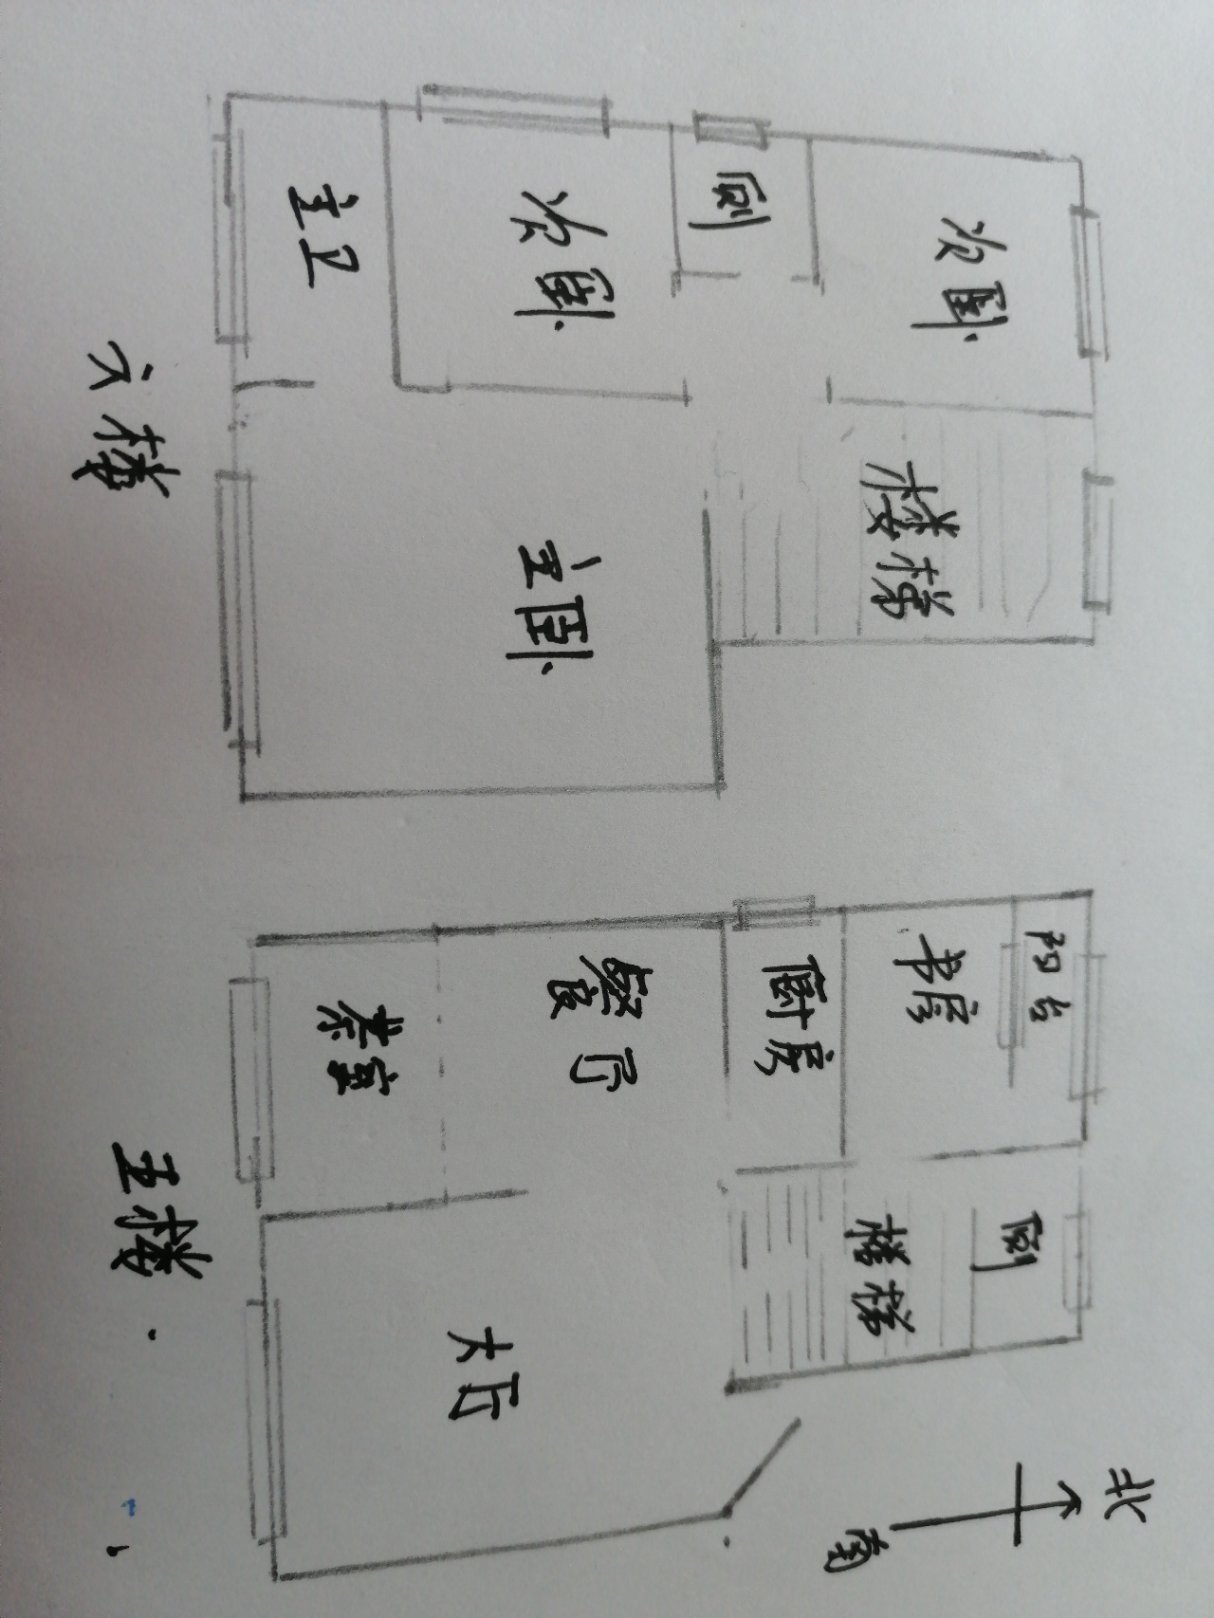 次卧
楼梯
厕
次卧
主卧
主卫
六楼
北
南
阳台
厕
书房
楼梯
厨房
餐厅
大厅
茶室
五楼